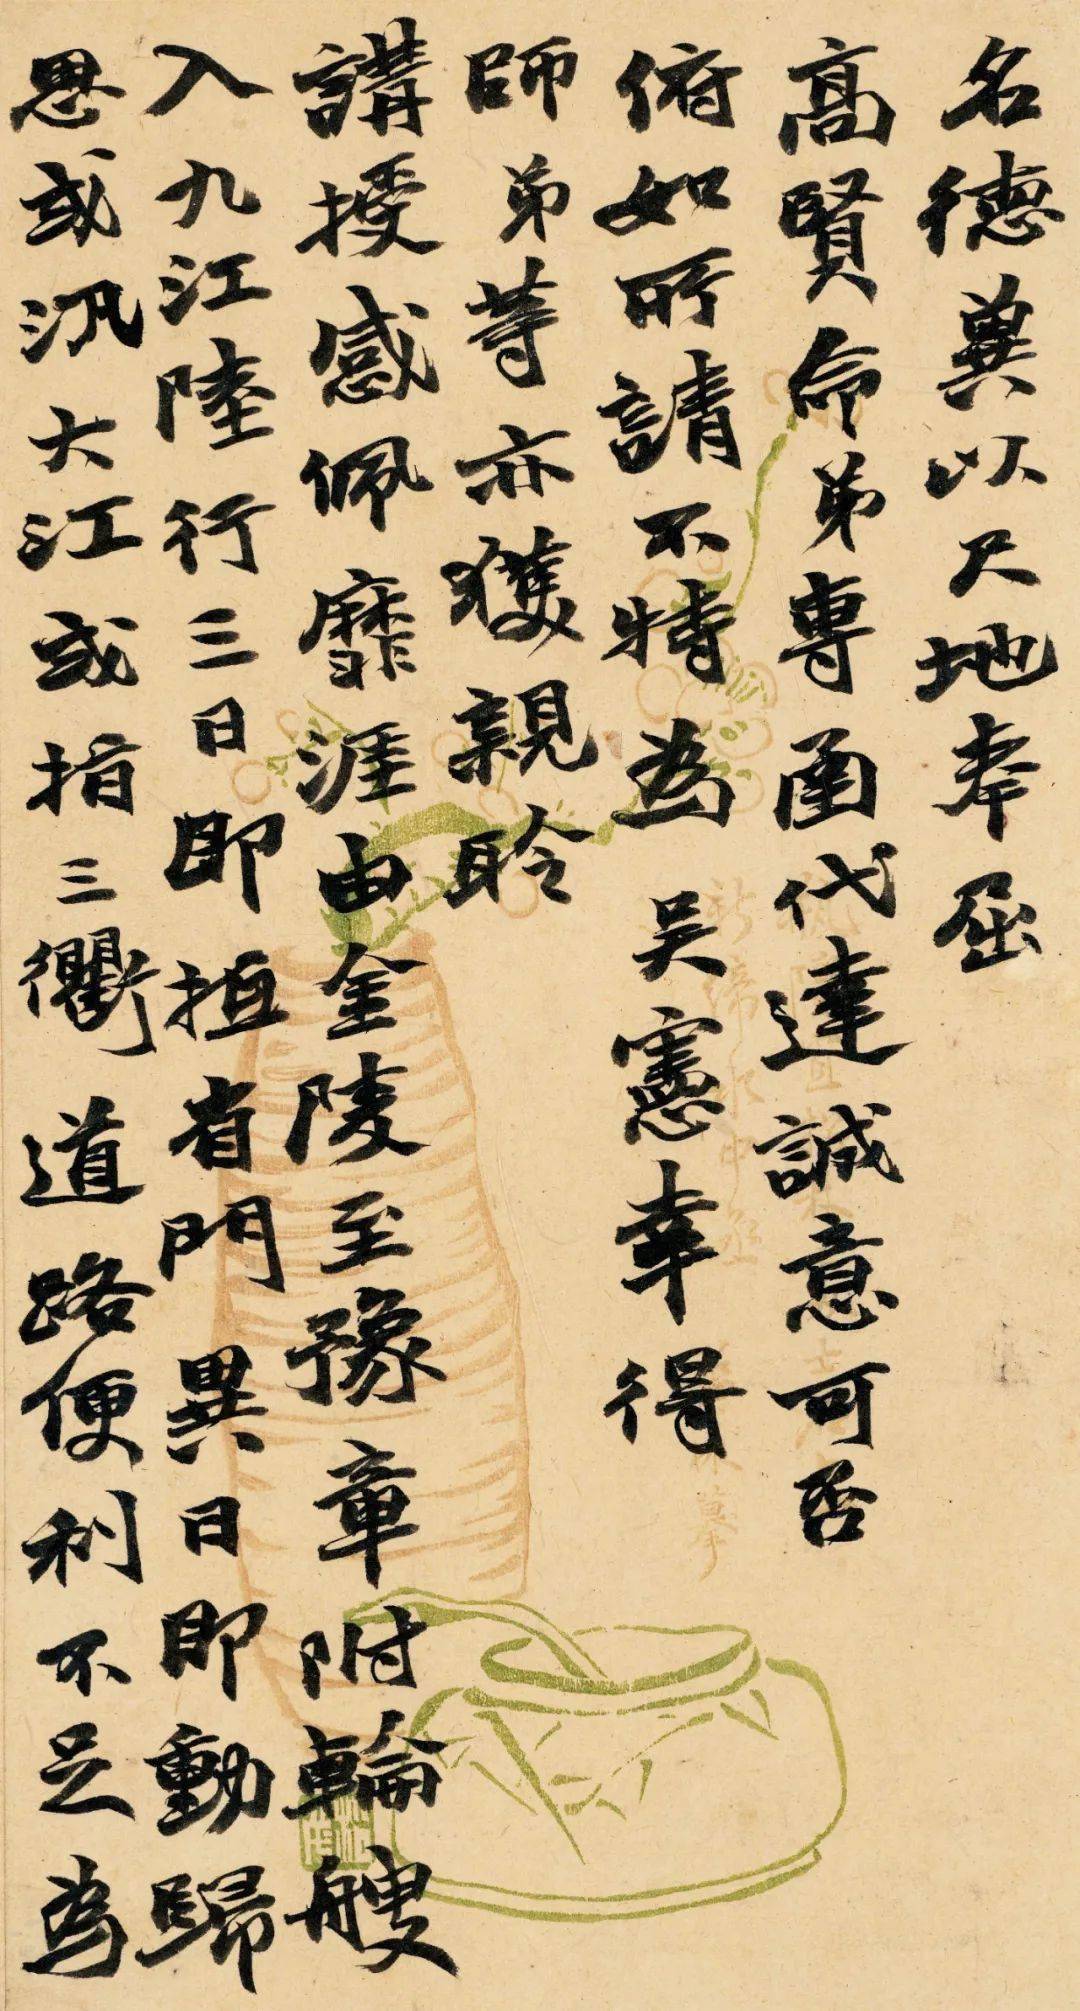 名德冀以天地奉屈
高賢命弟專圅代達誠意可否
俯如所請不特為吳憲幸得
師弟等亦獲親聆
講授感佩靡涯由金陵至豫章附輪艘
入九江陸行三日即抵省門異日即動歸
思或汎大江或指三衢道路便利不足為